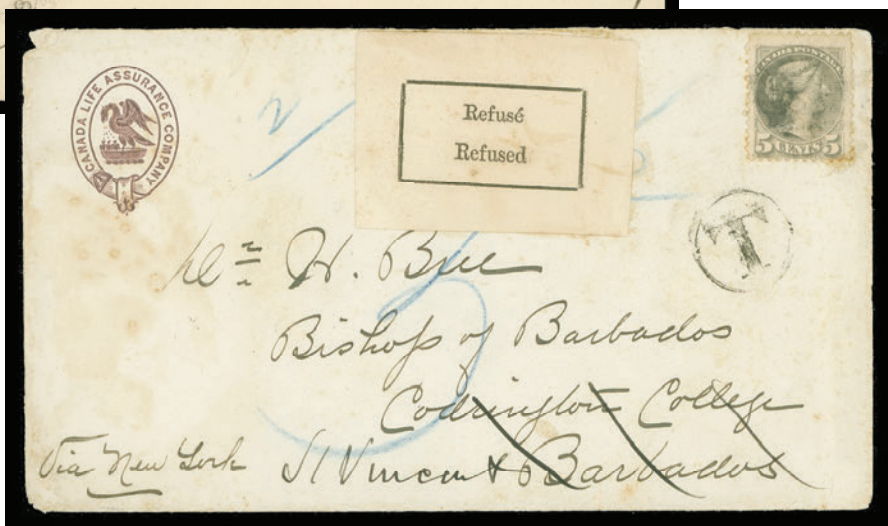 CANADA LIFE ASSURANCE COMPANY
Refusé
Refused
CANADA POSTAGE
5 CENTS 5
T
H. Bree
Bishop of Barbados
Codrington College
St Vincent Barbados
Via New York